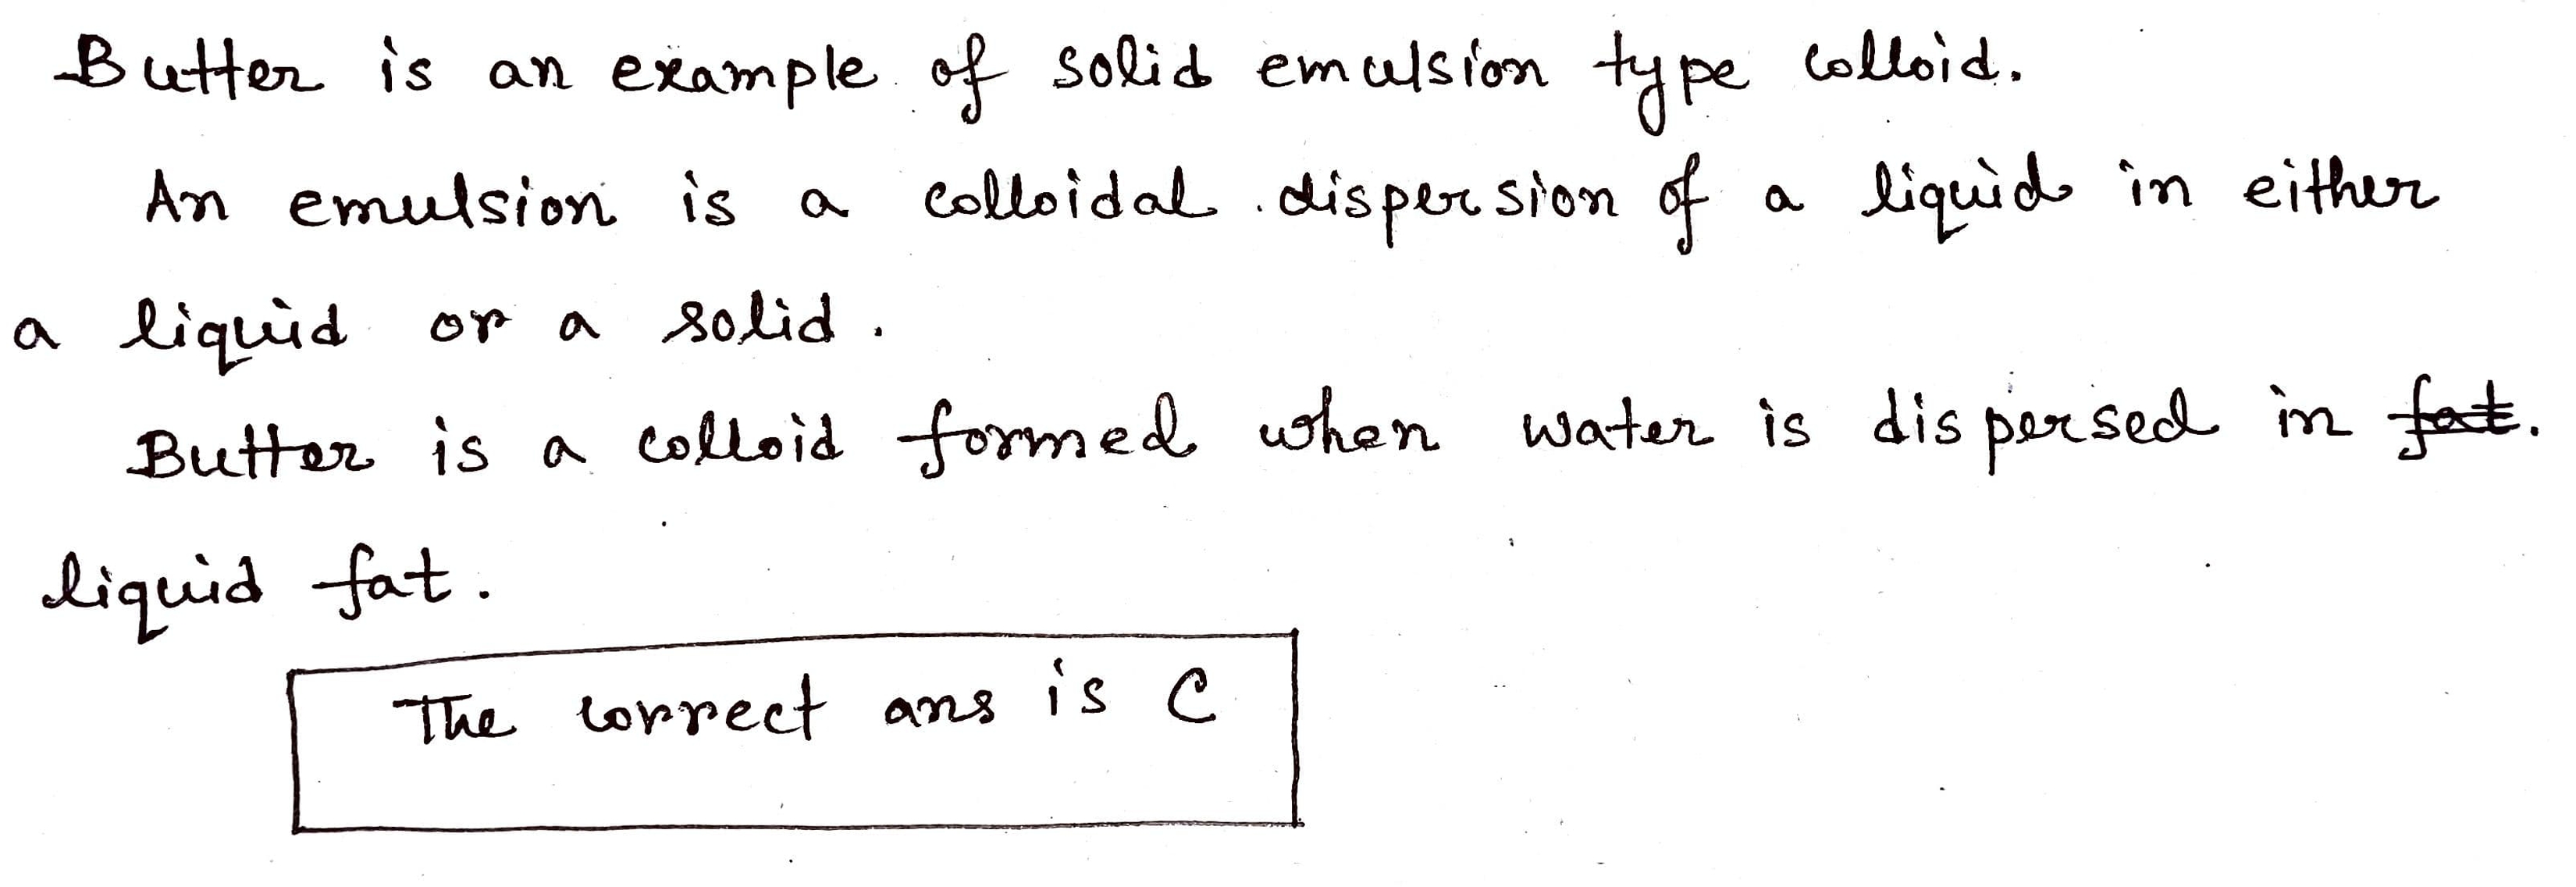 Butter is an example of solid emulsion type colloid.
An emulsion is a colloidal dispersion of a liquid in either
a liquid or a solid.
Butter is a colloid formed when water is dispersed in fat.
liquid fat.
The correct ans is C